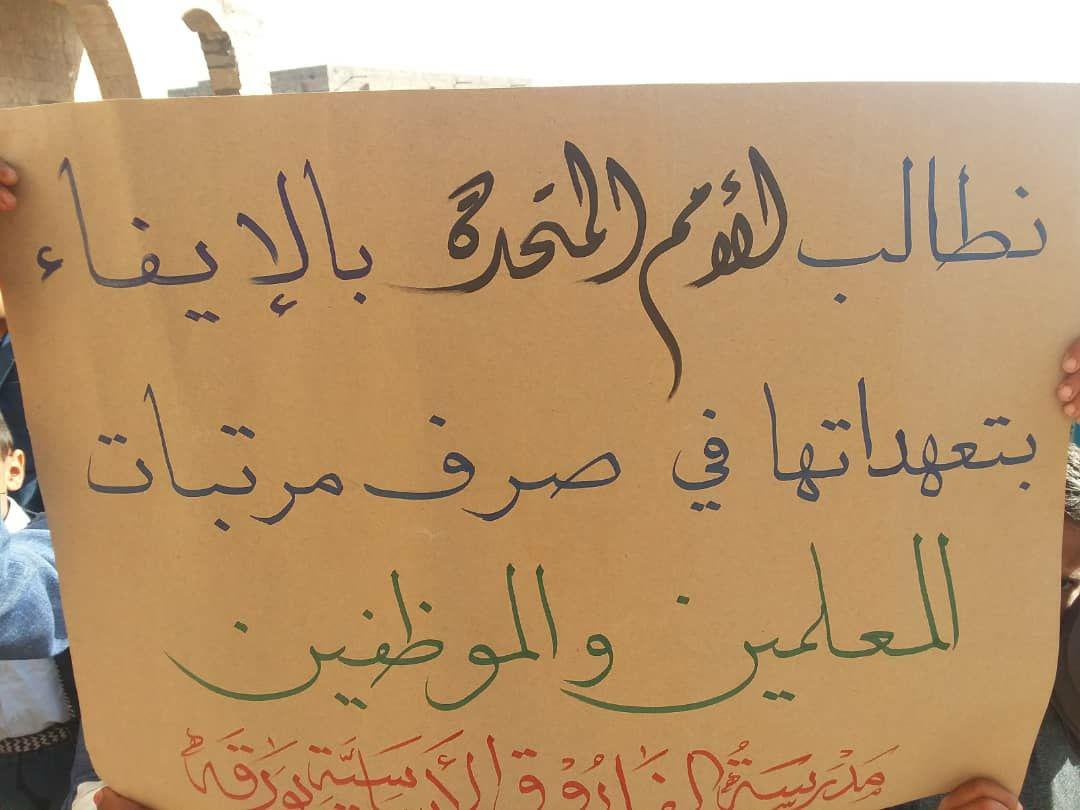 نطالب الأمم المتحدة بالإيفاء
بتعهداتها في صرف مرتبات
المعلمين والموظفين
مَدْرَسَةُ الفَارُوْق الأَسَاسِيَّة بِوَرَقَه